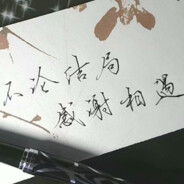 不论结局
感谢相遇